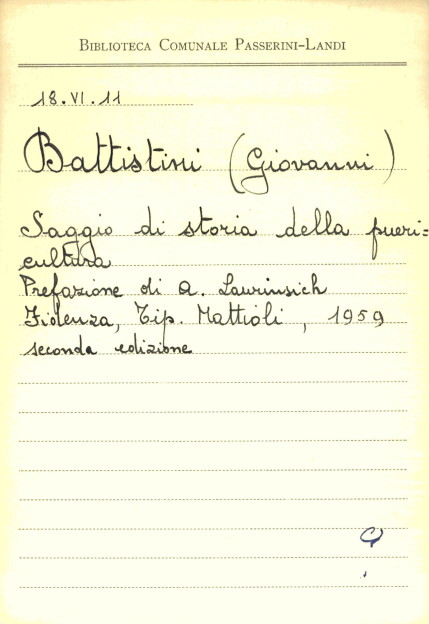 BIBLIOTECA COMUNALE PASSERINI-LANDI
18.VI.11
Battistini (Giovanni)
Saggio di storia della pueri=
cultura
Prefazione di A. Laurinsich
Fidenza, Tip. Mattioli, 1959
seconda edizione